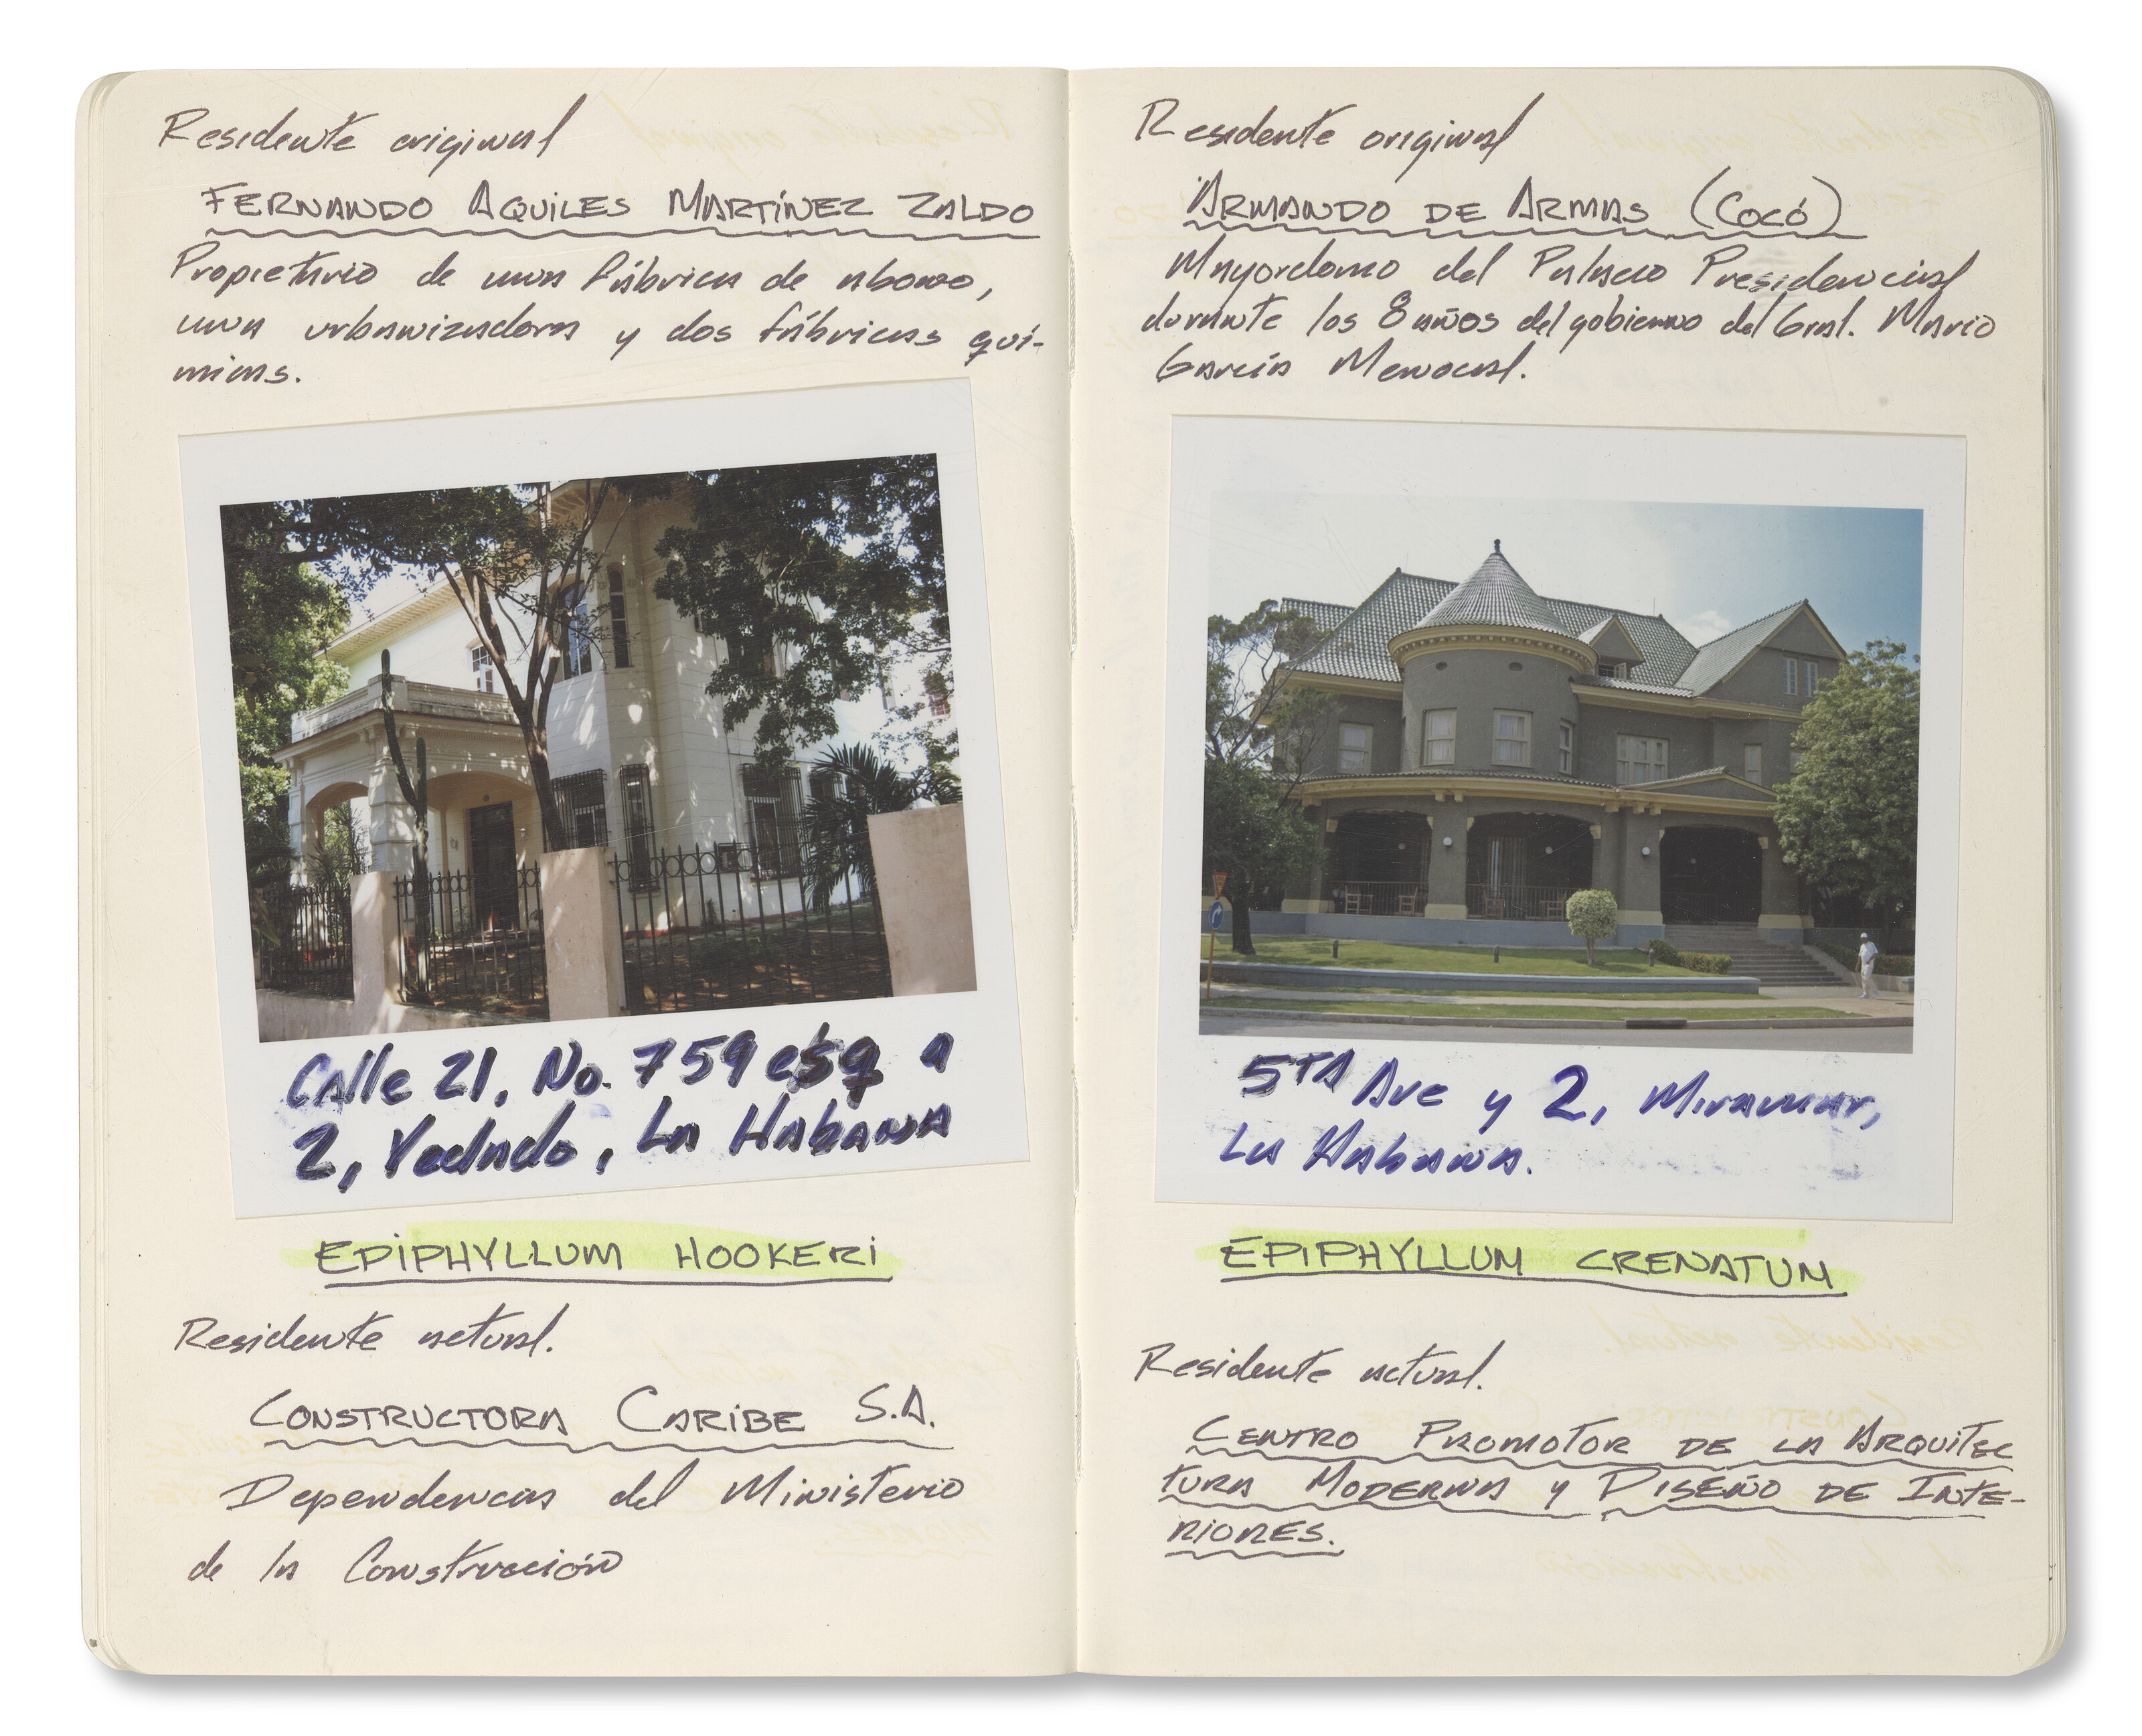 Residente original
FERNANDO AQUILES MARTÍNEZ ZALDO
Propietario de una fábrica de abono,
una urbanizadora y dos fábricas quí-
micas.
Calle 21, No. 759 esq a
2, Vedado, La Habana
EPIPHYLLUM HOOKERI
Residente actual.
CONSTRUCTORA CARIBE S.A.
Dependencas del Ministerio
de la Construcción
Residente original
ARMANDO DE ARMAS (COCÓ)
Mayordomo del Palacio Presidencial
durante los 8 años del gobierno del Gral. Mario
García Menocal.
5TA Ave y 2, Miramar,
La Habana.
EPIPHYLLUM CRENATUM
Residente actual.
CENTRO PROMOTOR DE LA ARQUITEC
TURA MODERNA Y DISEÑO DE INTE-
RIORES.